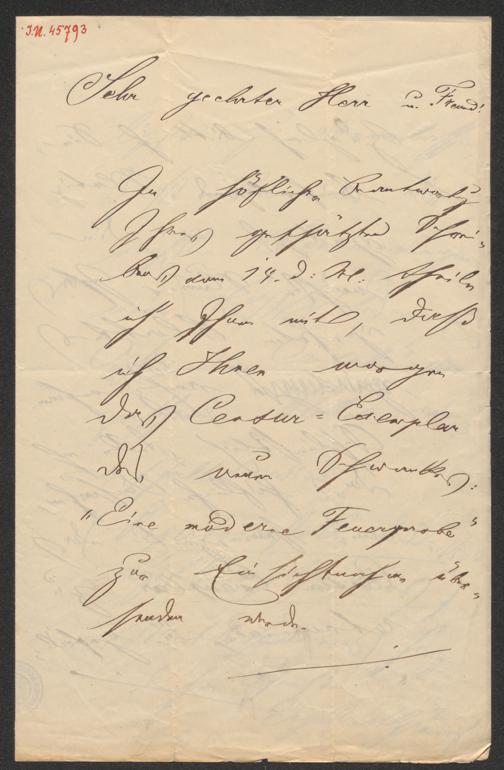 I.N. 45793
Sehr geehrter Herr u. Freund!
In höflicher Beantwortg
Ihres geschätzten Schrei-
bens vom 14. d: Mt: theile
ich Ihnen mit, daß
ich Ihnen morgen
das Censur=Exemplar
des neuen Schwankes:
"Eine moderne Feuerprobe"
zur Einsichtnahme über-
senden werde.